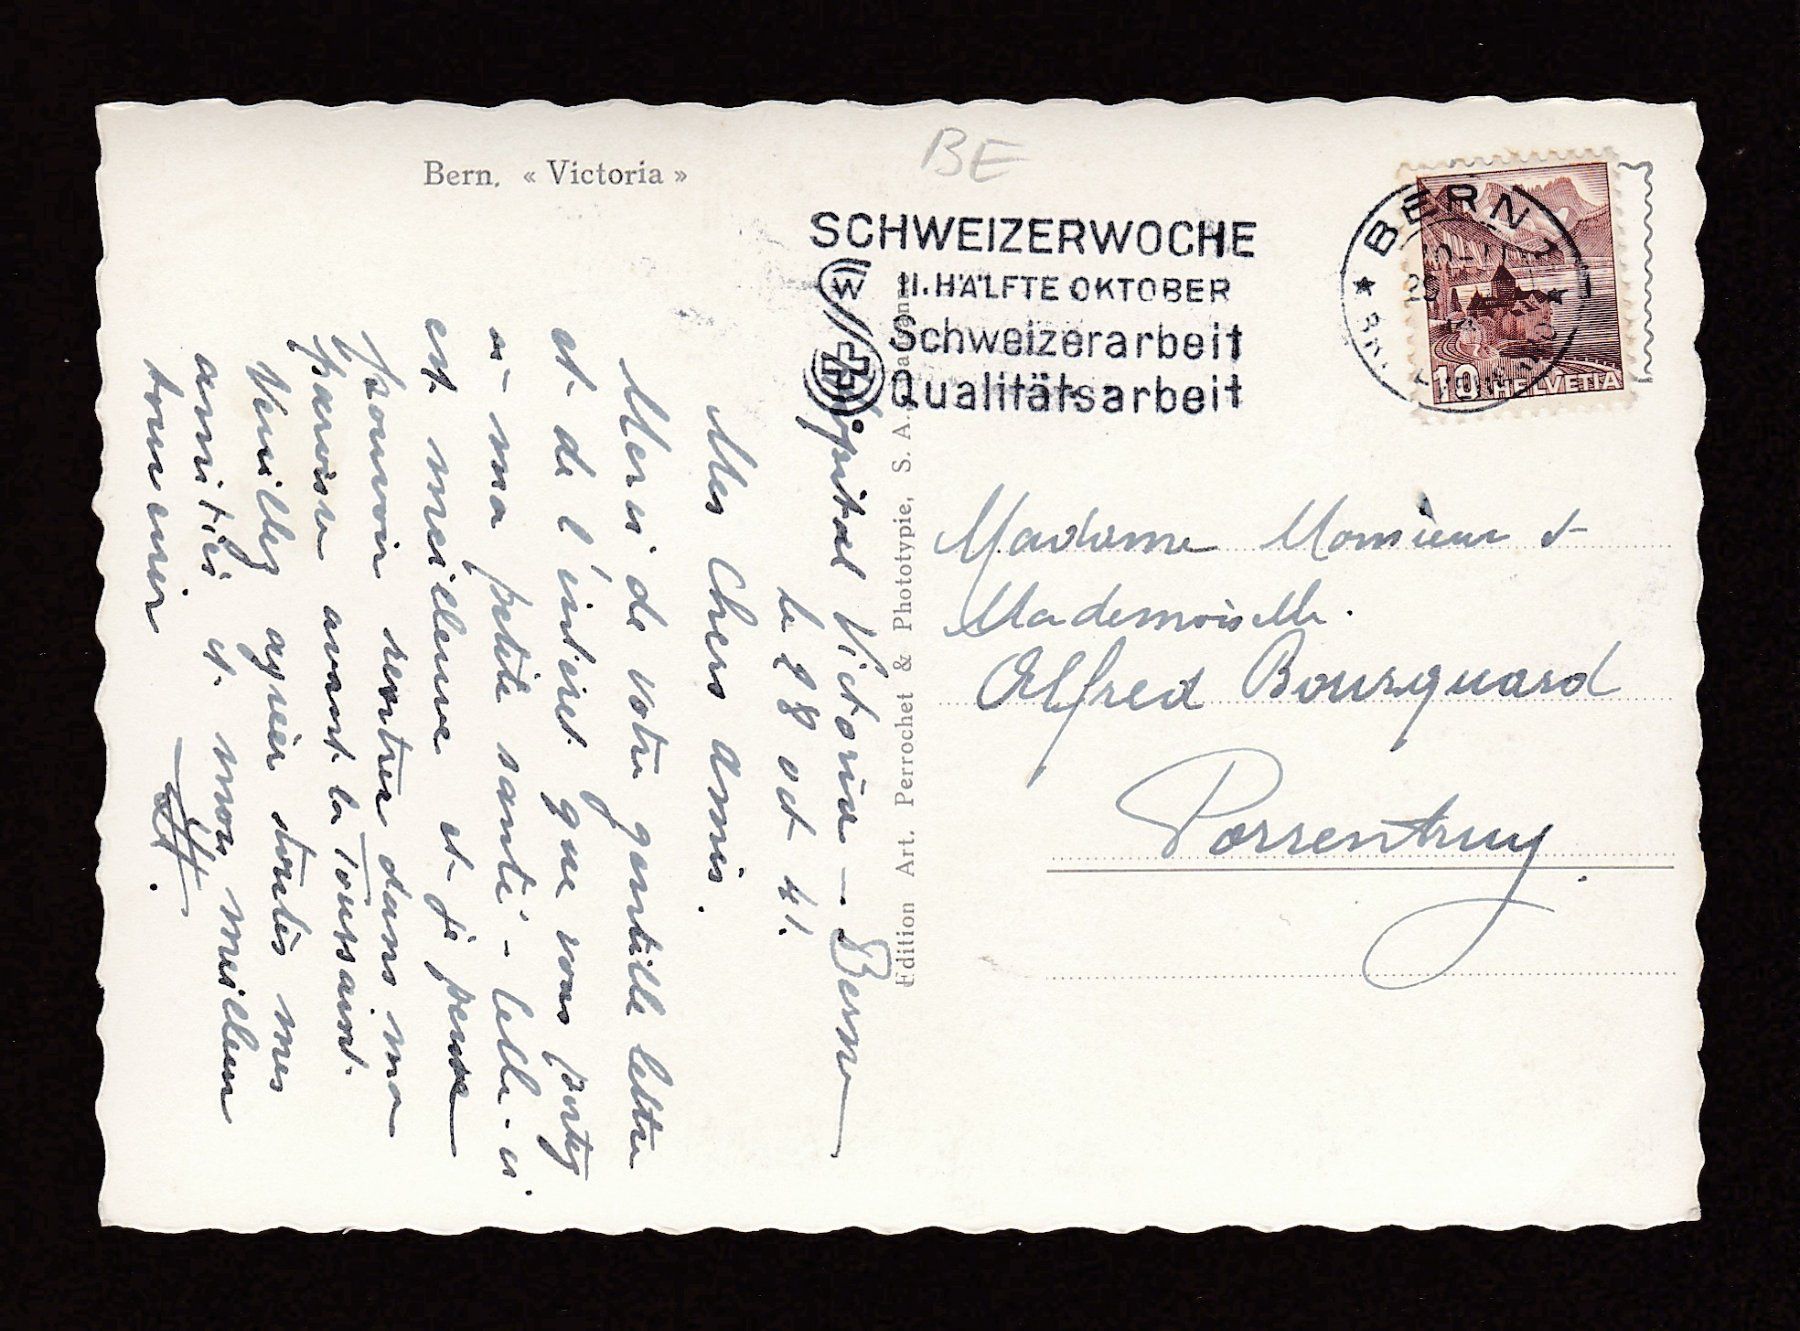 Bern. « Victoria »
BE
SCHWEIZERWOCHE
II. HÄLFTE OKTOBER
Schweizerarbeit
Qualitätsarbeit
W
BERN 1
10 HELVETIA
Hôpital Victoria – Berne
le 28 oct 41.
Mes chers amis.
Merci de votre gentille lettre
et de l'intérêt que vous portez
à ma petite santé – celle-ci
est meilleure et je pense
pouvoir rentrer dans ma
paroisse avant la Toussaint.
Veuillez agréer toutes mes
amitiés et mon meilleur
souvenir
Edition Art. Perrochet & Phototypie, S. A.
Madame Monsieur et
Mademoiselle.
Alfred Bourquard
Porrentruy.